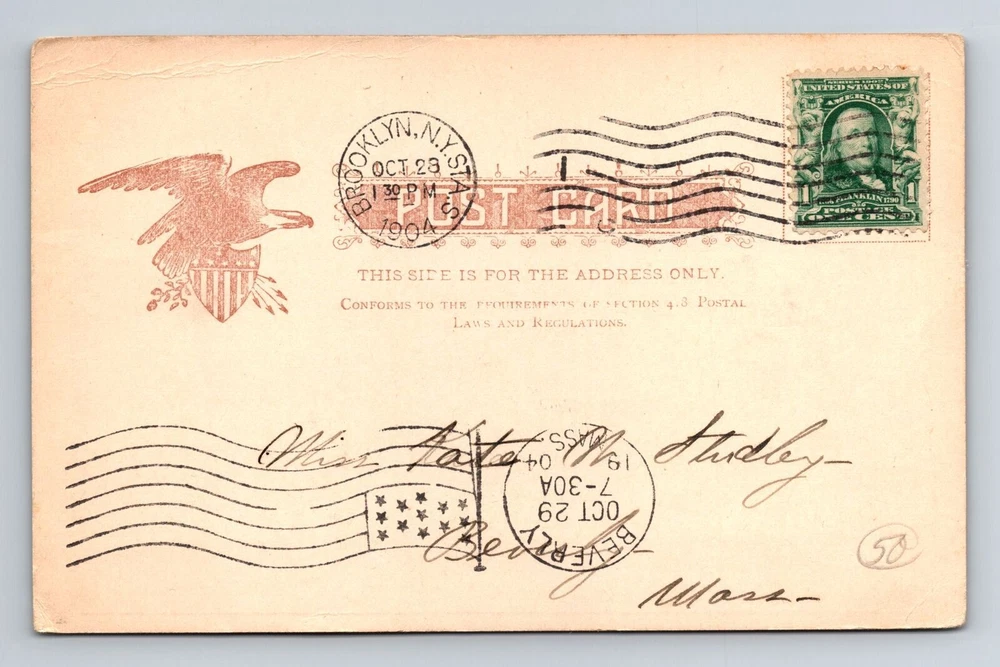 SERIES 1902
UNITED STATES OF
AMERICA
1 1
FRANKLIN 1790
POSTAGE
ONE CENT
BROOKLYN, N.Y. STA. S
OCT 28
1 30 PM
1904
POST CARD
THIS SIDE IS FOR THE ADDRESS ONLY.
CONFORMS TO THE REQUIREMENTS OF SECTION 4.8 POSTAL
LAWS AND REGULATIONS.
Miss Kate M Studley
Beverly
Mass
BEVERLY
OCT 29
7-30A
19 04
MASS.
50